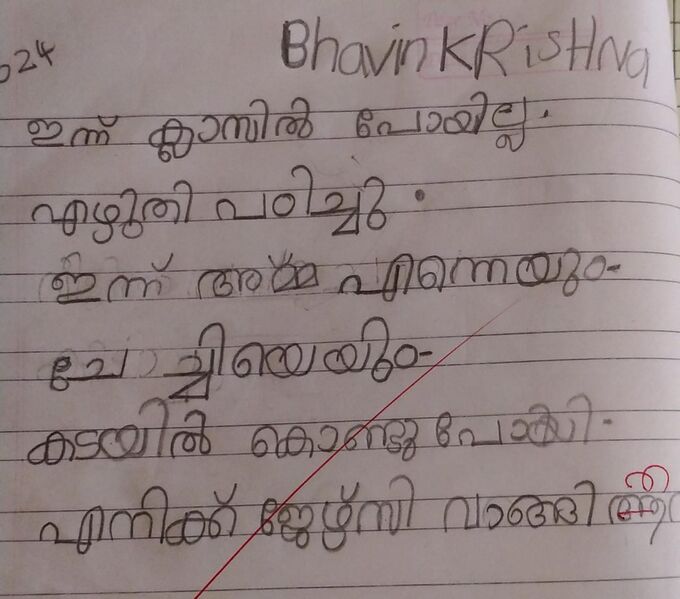 024
BhavinKRisHNa
ഇന്ന് ക്ലാസിൽ പോയില്ല.
എഴുതി പഠിച്ചു.
ഇന്ന് അമ്മ എന്നെയും
ചേച്ചിയെയും
കടയിൽ കൊണ്ടു പോയി.
എനിക്ക് ജേഴ്സി വാങ്ങി